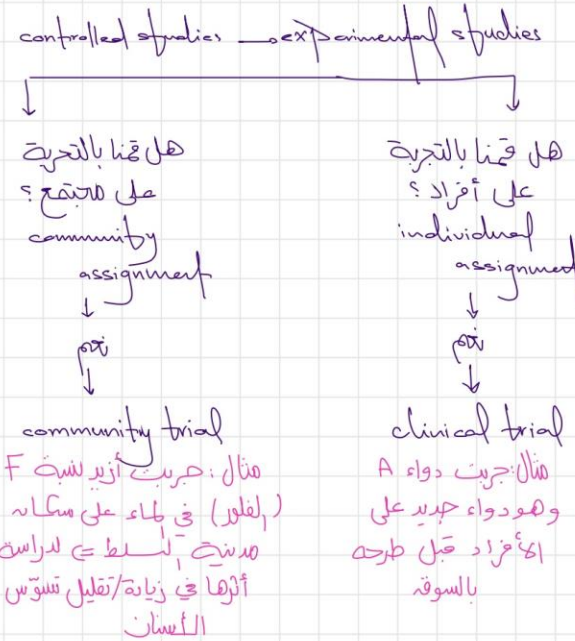 controlled studies → experimental studies
هل قمنا بالتجربة
على مجتمع؟
community
assignment
↓
نعم
↓
community trial
مثال: جربت أزيد نسبة F
(الفلور) في الماء على سكان
مدينة السلط => لدراسة
أثرها في زيادة/تقليل تسوّس
الأسنان
هل قمنا بالتجربة
على أفراد؟
individual
assignment
↓
نعم
↓
clinical trial
مثال: جربت دواء A
وهو دواء جديد على
الأفراد قبل طرحه
بالسوق